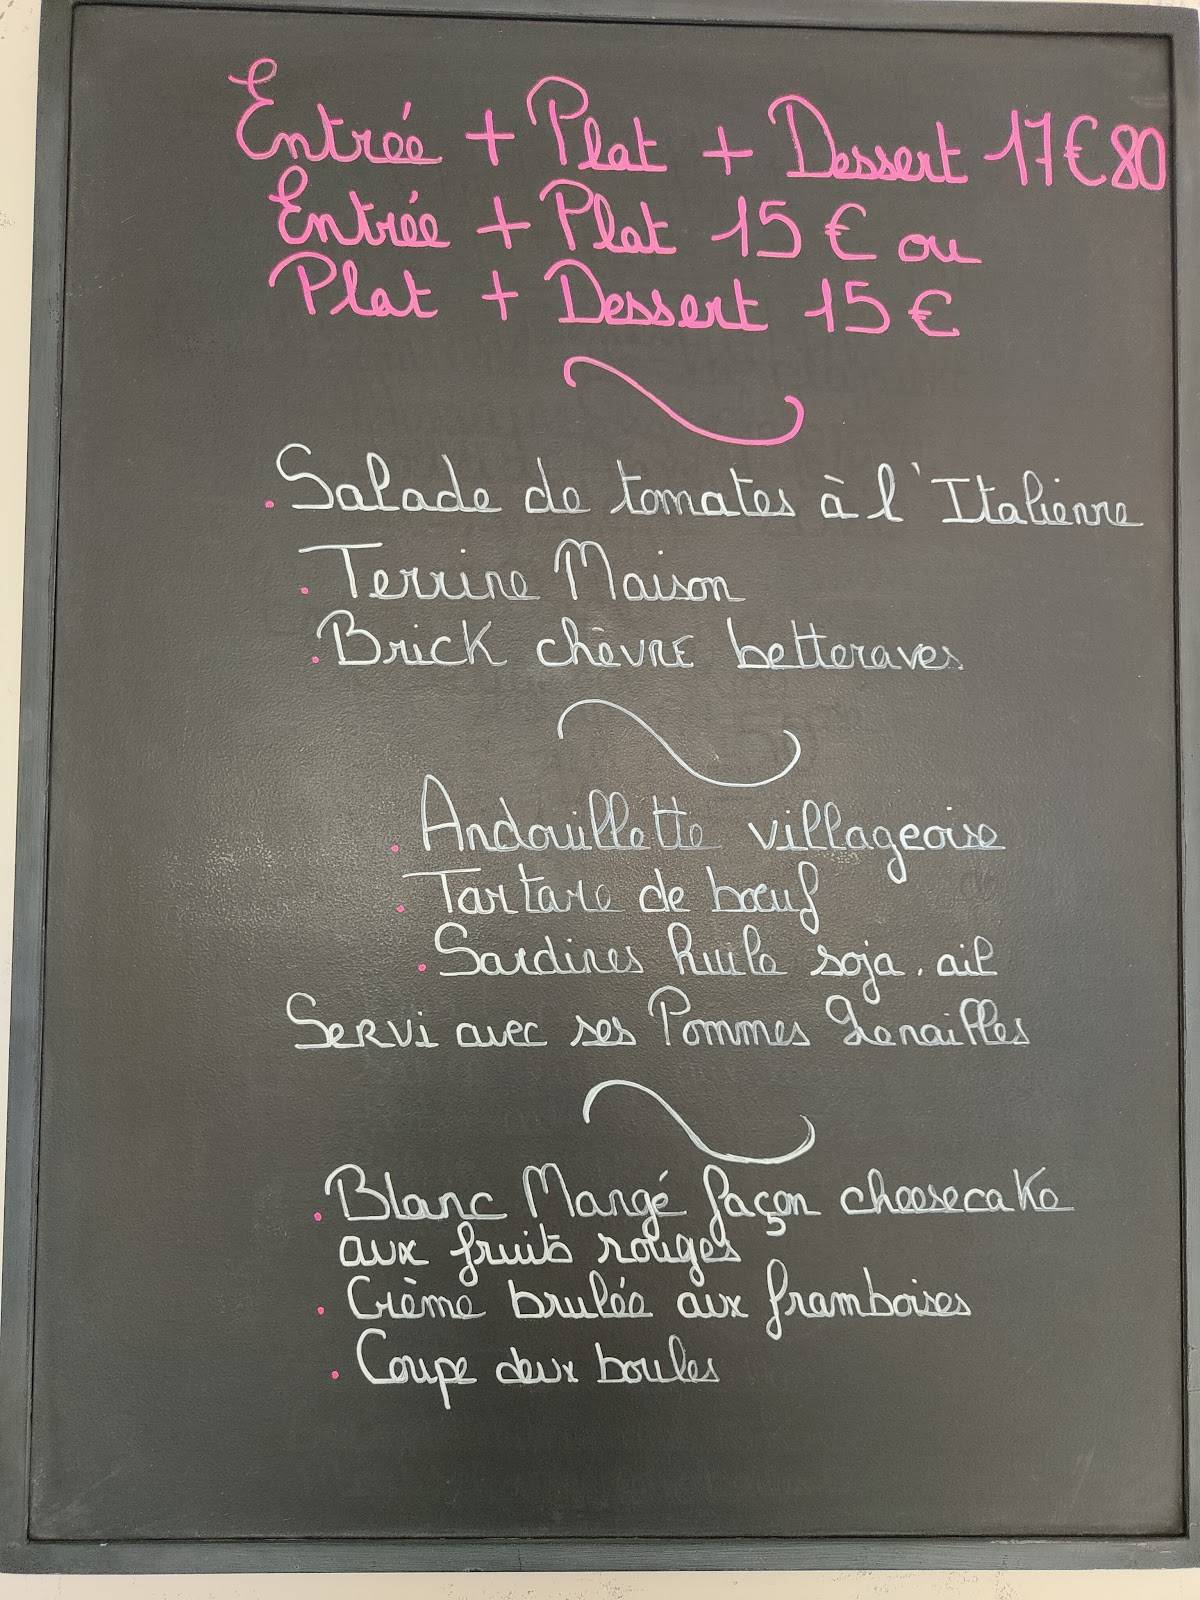 Entrée + Plat + Dessert 17€80
Entrée + Plat 15€ ou
Plat + Dessert 15€
. Salade de tomates à l'Italienne
. Terrine Maison
. Brick chèvre betteraves
. Andouillette villageoise
. Tartare de bœuf
. Sardines huile soja, ail
Servi avec ses Pommes Grenailles
. Blanc Mangé façon cheesecake
aux fruits rouges
. Crème brulée aux framboises
. Coupe deux boules